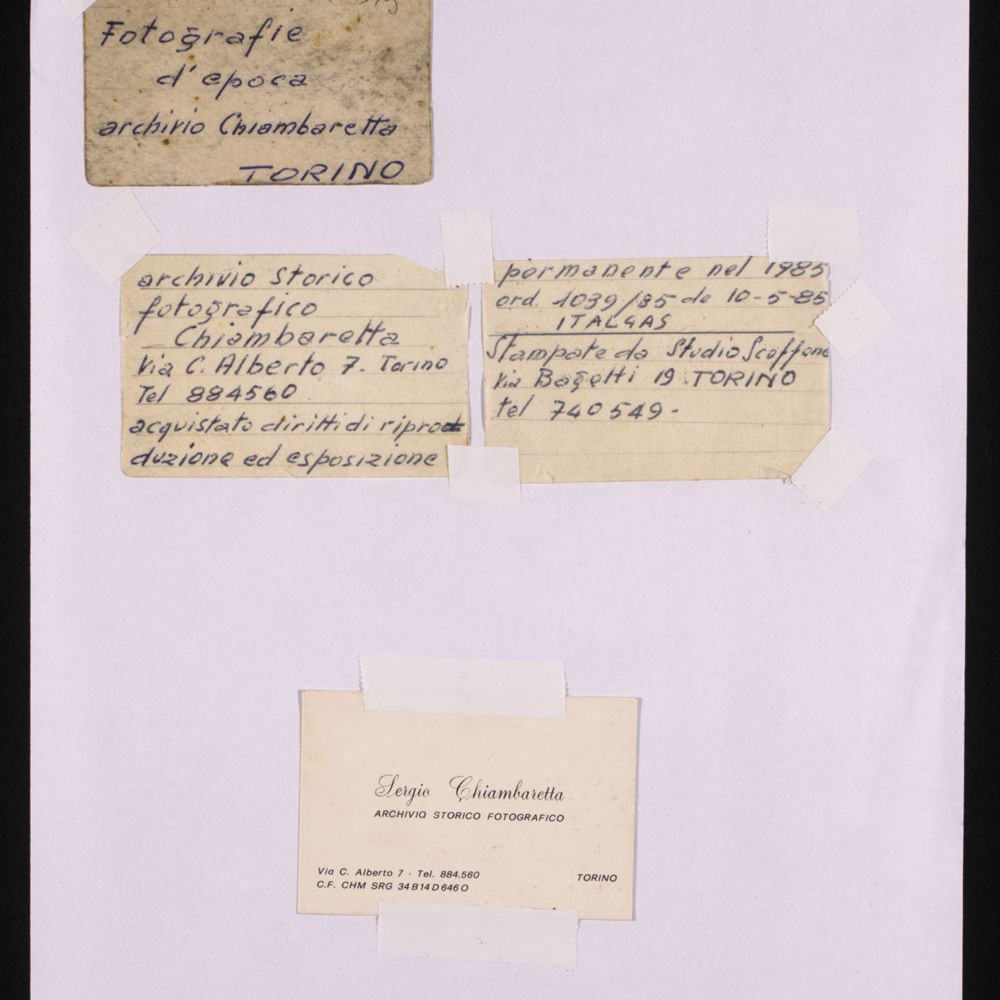 Fotografie
d'epoca
archivio Chiambaretta
TORINO
archivio storico
fotografico
Chiambaretta
Via C. Alberto 7. Torino
Tel 884560
acquistato diritti di riprod
duzione ed esposizione
permanente nel 1985
ord. 1039/85 de 10-5-85
ITALGAS
Stampate da Studio Scoffone
Via Bagetti 19. TORINO
tel 740549-
Sergio Chiambaretta
ARCHIVIO STORICO FOTOGRAFICO
Via C. Alberto 7 · Tel. 884.560
C.F. CHM SRG 34B14D646O
TORINO